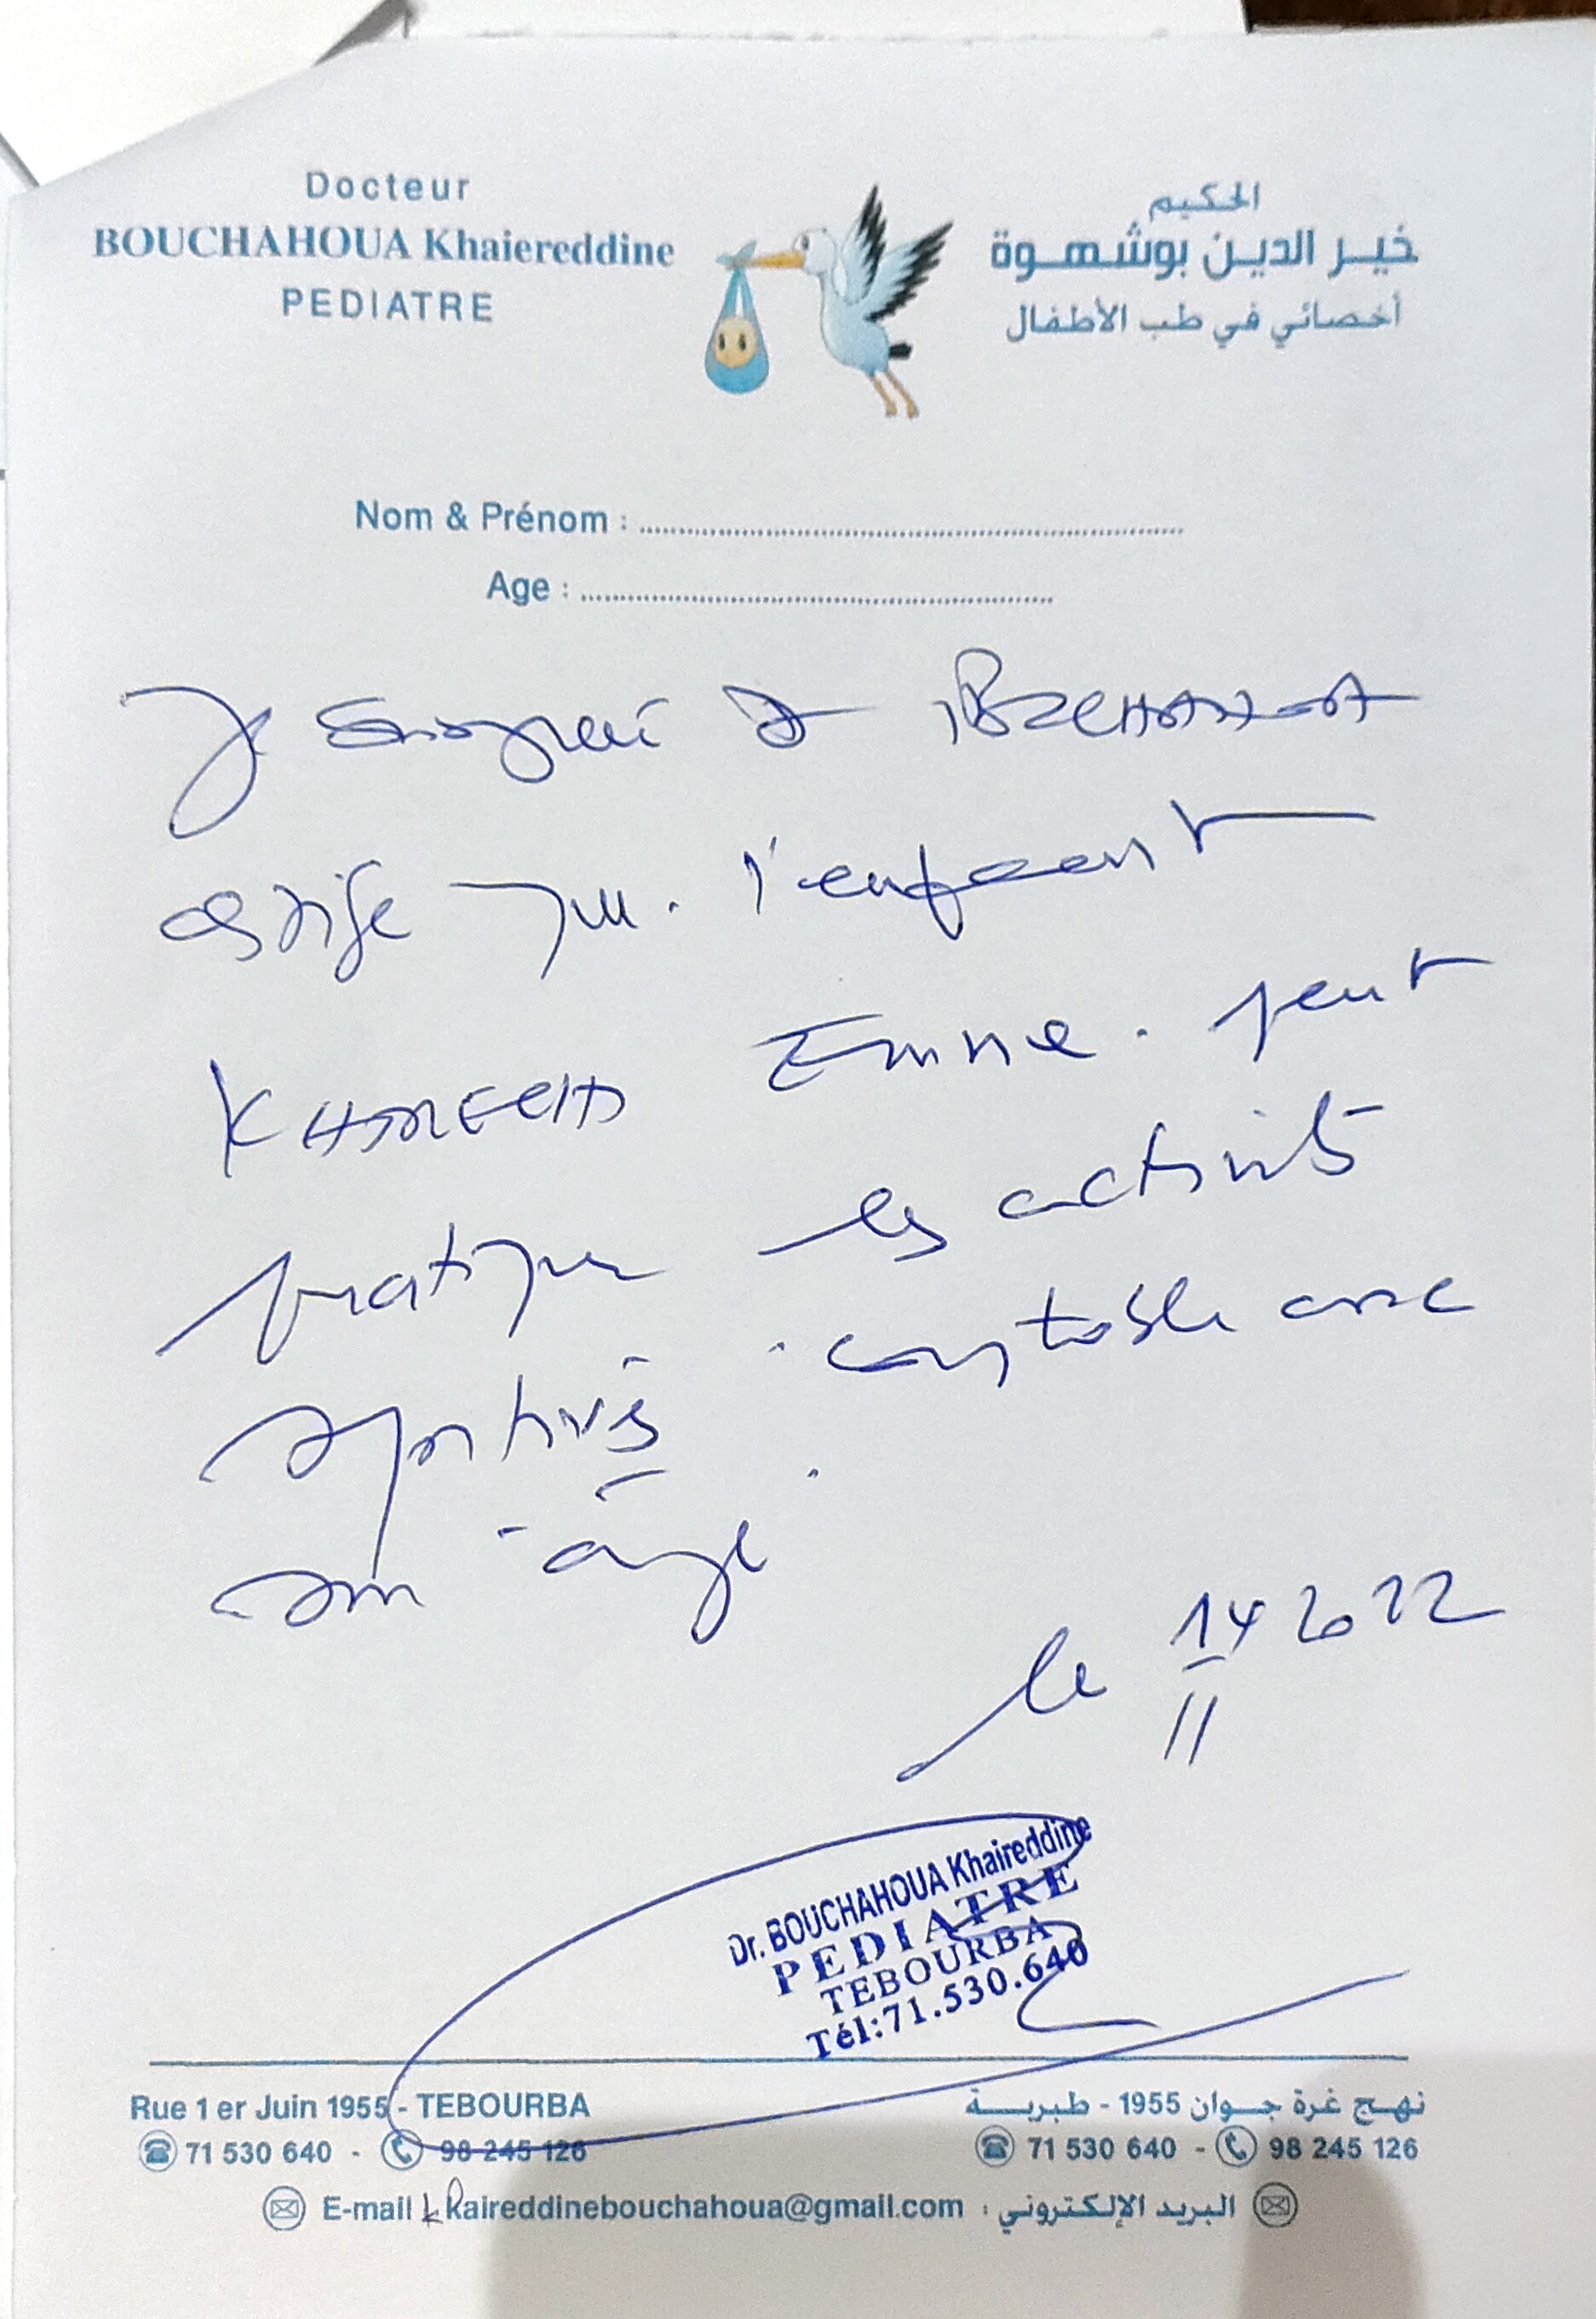 Docteur
BOUCHAHOUA Khaiereddine
PEDIATRE
الحكيم
خير الدين بوشهوة
أخصائي في طب الأطفال
Nom & Prénom :
Age :
Je soussigné Dr BOUCHAHOUA
certifie que l'enfant
Emna peut
pratiquer les activités
sportives compatible avec
son âge.
le 14 2022
11
Dr. BOUCHAHOUA Khaireddine
PEDIATRE
TEBOURBA
Tél:71.530.640
Rue 1 er Juin 1955 - TEBOURBA
71 530 640 - 98 245 126
نهج غرة جوان 1955 - طبربة
71 530 640 - 98 245 126
E-mail kkaireddinebouchahoua@gmail.com : البريد الإلكتروني